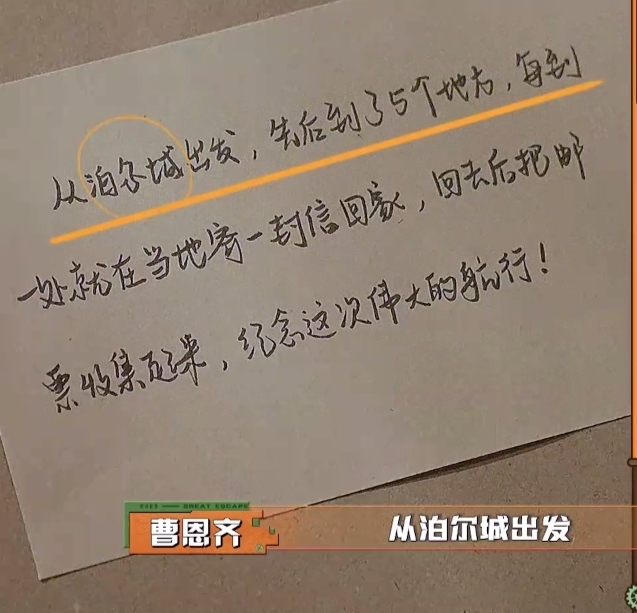 从泊尔城出发，先后到了5个地方，每到
一处就在当地寄一封信回家，回去后把邮
票收集起来，纪念这次伟大的航行！
GREAT ESCAPE
曹恩齐
从泊尔城出发